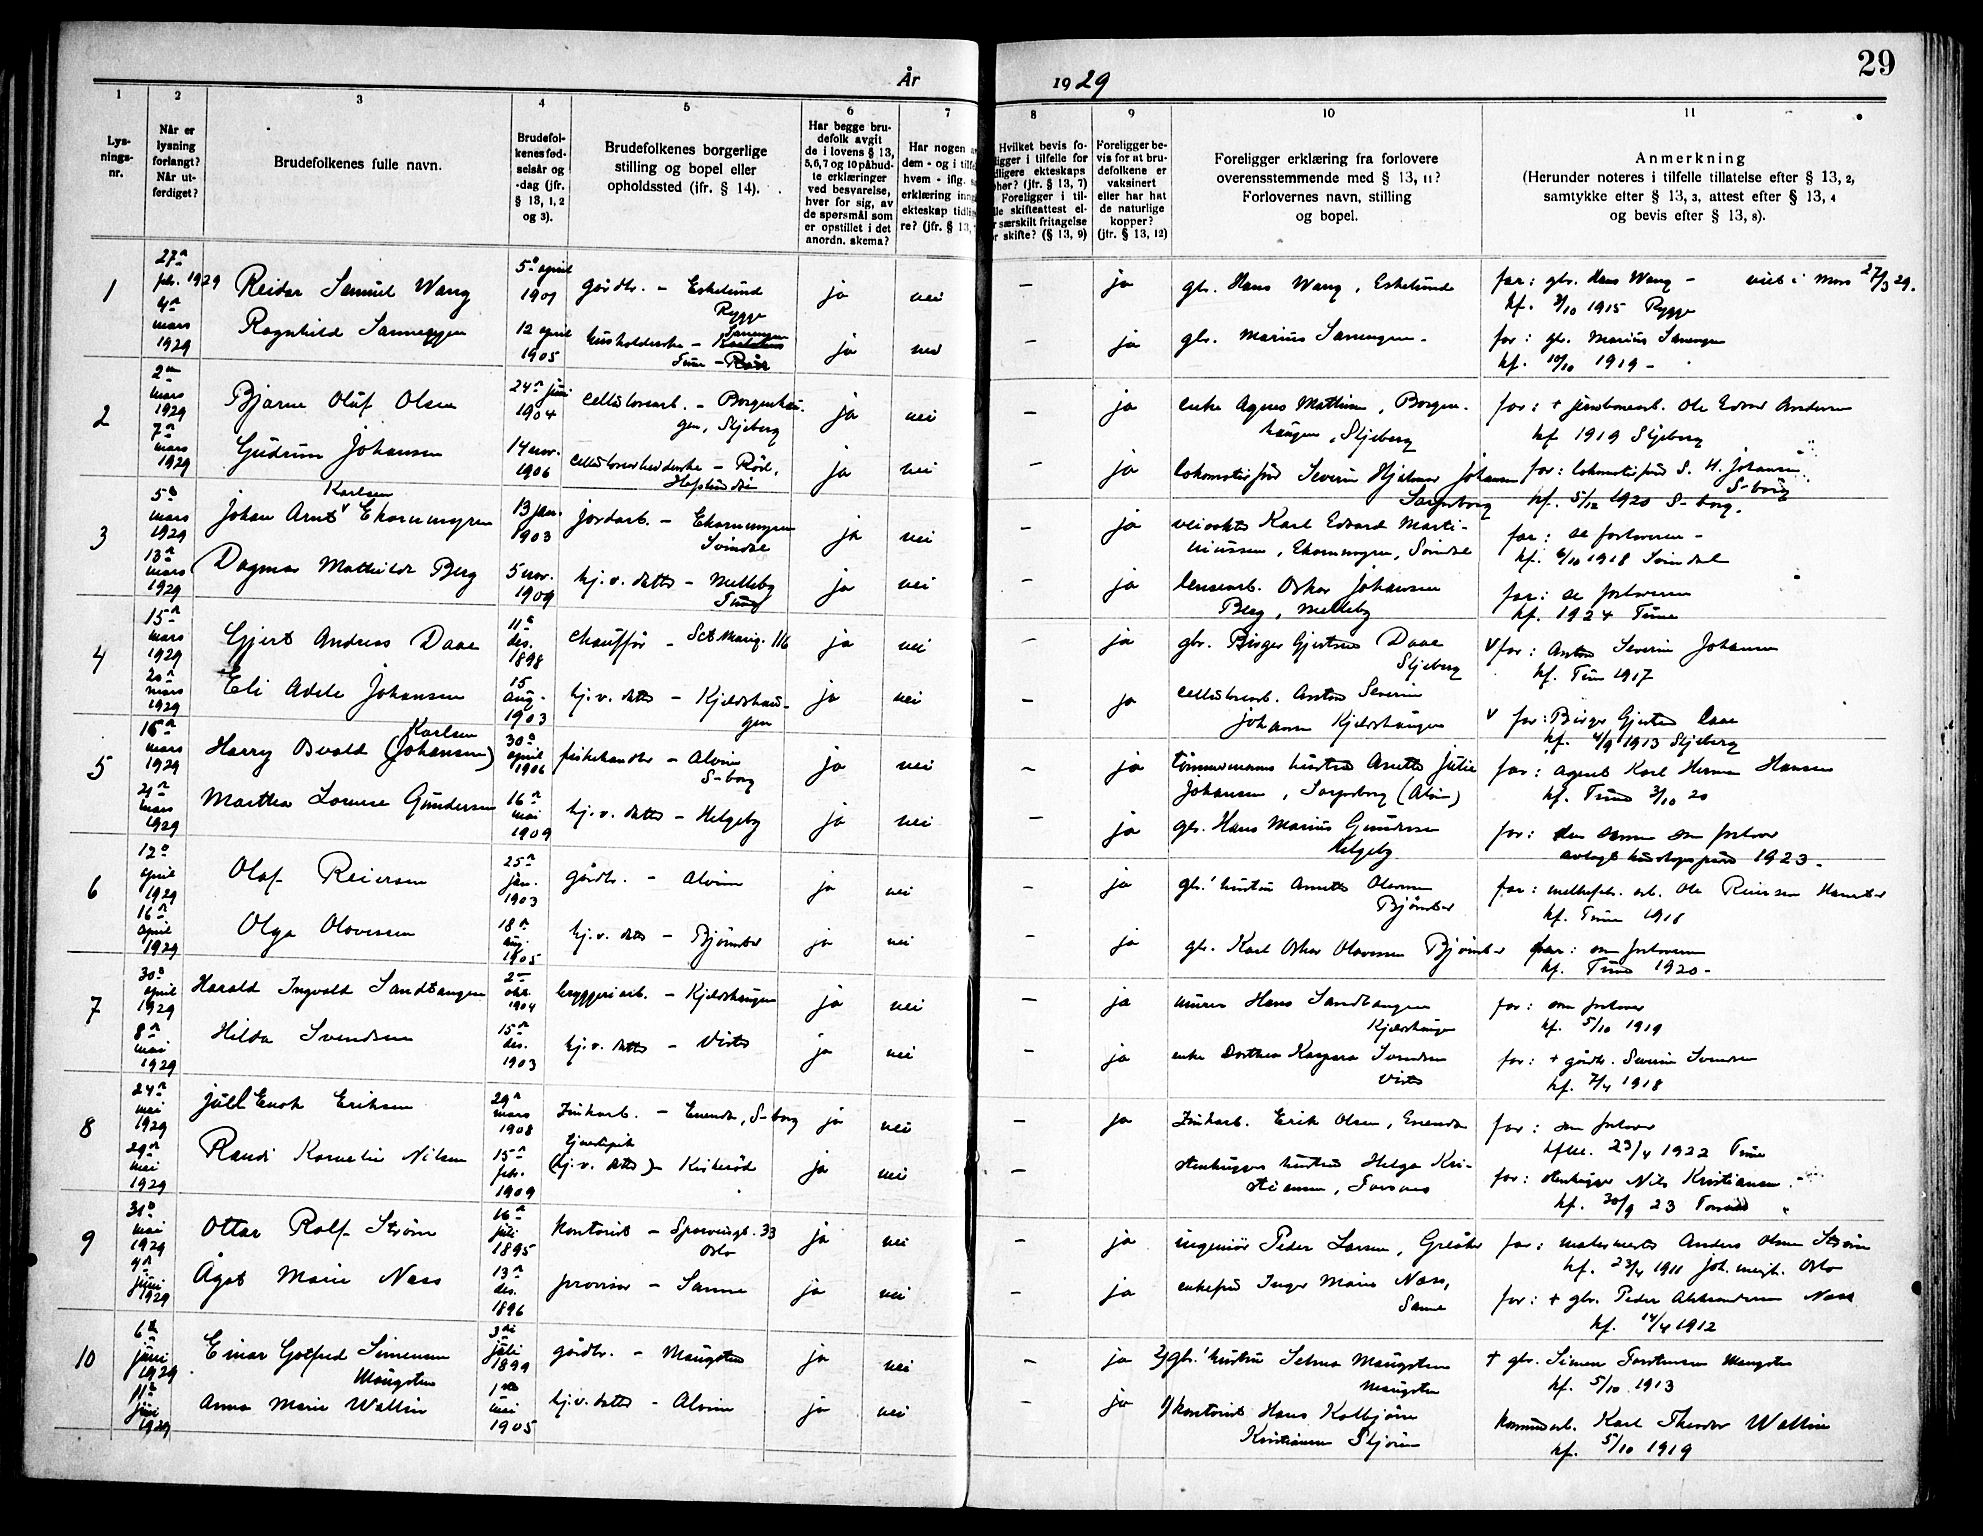 29
År 1929
1 2 3 4 5 6 7 8 9 10 11
Lysnings-nr.
Når er lysning forlangt? Når utferdiget?
Brudefolkenes fulle navn.
Brudefolkenes fødselsår og -dag (jfr. § 13, 1, 2 og 3).
Brudefolkenes borgerlige stilling og bopel eller opholdssted (ifr. § 14).
Har begge brudefolk avgit de i lovens § 13, 5, 6, 7 og 10 påbudte erklæringer ved besvarelse, hver for sig, av de spørsmål som er opstillet i det anordn. skema?
Har nogen
dem - og i tilf
hvem - iflg.
erklæring inng
ekteskap tidli
re? (jfr. § 13,
Hvilket bevis fo-
ligger i tilfelle for
dligere ekteskaps
pher? (jfr. § 13, 7)
Foreligger i til-
lle skifteattest el-
r særskilt fritagelse
r skifte? (§ 13, 9)
Foreligger bevis for at brudefolkene er vaksinert eller har hat de naturlige kopper? (jfr. § 13, 12)
Foreligger erklæring fra forlovere overensstemmende med § 13, 11? Forlovernes navn, stilling og bopel.
Anmerkning
(Herunder noteres i tilfelle tillatelse efter § 13, 2, samtykke efter § 13, 3, attest efter § 13, 4 og bevis efter § 13, 8).
1 27 feb. 1929 Reidar Samuel Wang 5 april 1901 gårdbr. – Eskelund Rygge ja nei – ja gbr. Hans Wang, Eskelund far: gbr. Hans Wang – viet i Moss 27/3 29.
kf. 3/10 1915 Rygge
4 mars 1929 Ragnhild 12 april 1905 husholderske – Tune ja nei – ja gbr. Marius far: gbr. Marius
kf. 10/10 1919 –
2 2 mars 1929 Bjarne Oluf Olsen 24 juni 1904 cellulosearb. – Borgenhaugen, Skjeberg ja nei – ja enke Agnes Mathisen, Borgenhaugen, Skjeberg far: + jernbanearb. Ole Edvar Andersen
kf 1919 Skjeberg
7 mars 1929 Gudrun Johansen 14 nov. 1906 – Rød, Hafslundsøi ja nei – ja lokomotivfører Severin Hjalmar Johansen Sarpsborg far: lokomotivfører S. H. Johansen S-borg
kf. 5/12 1920 S-borg.
3 5 mars 1929 Johan Arnt Karlsen Ekornmyren 13 jan. 1903 jordarb. – Ekornmyren Svindal ja nei – ja veivokter Karl Edvard Martiniussen, Ekornmyren, Svindal far: se forloveren –
kf. 6/10 1918 Svindal
13 mars 1929 Dagmar Mathilde Berg 5 nov. 1909 hj. v. datter – Melleby ja nei – ja lensearb. Oskar Johansen Berg, Melleby far: se forloveren
kf. 1924 Tune
4 15 mars 1929 Gjert Andreas Daae 11 des. 1898 chauffør – Sct Marieg. 116 ja nei – ja gbr. Birger Gjertsen Daae Skjeberg v far: Anton Severin Johansen
kf. Tune 1917
20 mars 1929 Eli Adele Johansen 15 aug. 1903 hj. v. datter – Kjeldshaugen ja nei – ja cellulosearb. Anton Severin Johansen Kjeldshaugen v far: Birger Gjertsen Daae
kf. 4/9 1913 Skjeberg
5 16 mars 1929 Harry Osvald Karlsen (Johansen) 30 april 1906 fiskehandler – Alvim S-borg ja nei – ja tømmermanns hustru Anette Julie Johansen, Sarpsborg (Alvim) far: agent Karl Herman Hansen
kf. Tune 3/10 20
21 mars 1929 Martha Lovise Gundersen 16 mai 1909 hj. v. datter – Helgeby ja nei – ja gbr. Hans Marius Gundersen Helgeby far: den samme som forlover
1923 –
6 12 april 1929 Olaf Reiersen 25 jan. 1903 gårdbr. – Alvim ja nei – ja gbr.' hustru Anette Olavesen Bjørnbær far: arb. Ole Reiersen
kf. Tune 1918
16 april 1929 Olga Olavesen 18 aug. 1905 hj. v. datter – ja nei – ja gbr. Karl Oskar Olavesen far: som forloveren
kf. Tune 1920 –
7 30 april 1929 Harald Ingvald Sandtangen 2 okt. 1904 bryggeriarb. – Kjeldshaugen ja nei – ja murer Hans Sandtangen Kjeldshaugen far: som forlover
kf. 5/10 1919
8 mai 1929 Hilda Svendsen 15 des. 1903 hj. v. datter – Vister ja nei – ja enke Dorthea Kaspara Svendsen Vister far: + gårdbr. Severin Svendsen
kf. 7/4 1918
8 24 mai 1929 Juell Enok Eriksen 29 mars 1908 Zinkarb. – Enenda, S-borg ja nei – ja Zinkarb. Erik Olsen, Enenda far: som forlover
23/4 1922 Tune
29 mai 1929 Randi Kornelie Nilsen 15 febr. 1909 tjenestepike (hj. v. datter) – ja nei – stenhuggers hustru Helga Kristiansen, far: stenhugger Nils Kristiansen
kf. 30/9 23
9 31 mai 1929 Ottar Rolf Strøm 16 juli 1895 kontorist – Sporveisgt. 33 Oslo ja nei – ja ingeniør Peder Larsen, Greåker far: Anders Olsen Strøm
kf. 23/4 1911 Joh. menigh. Oslo
4 juni 1929 Ågot Marie Næss 13 des. 1896 provisor – Sanne ja nei – ja enkefru Inger Marie Næss, Sanne far: + gbr. Peder Aleksandersen Næss
kf. 14/4 1912
10 6 juni 1929 Einar Gotfred Simensen Maugsten 3 juli 1899 gårdbr. – Maugsten ja nei – ja 2) gbr.' hustru Selma Maugsten Maugsten + gbr. Simen Torstensen Maugsten
kf. 5/10 1913
11 juni 1929 Anna Marie Wallin 1 mai 1905 hj. v. datter – Alvim ja nei – ja 1) kontorist Hans Kolbjørn Kristiansen Skjøren kommunearb. Karl Theodor Wallin
kf. 5/10 1919